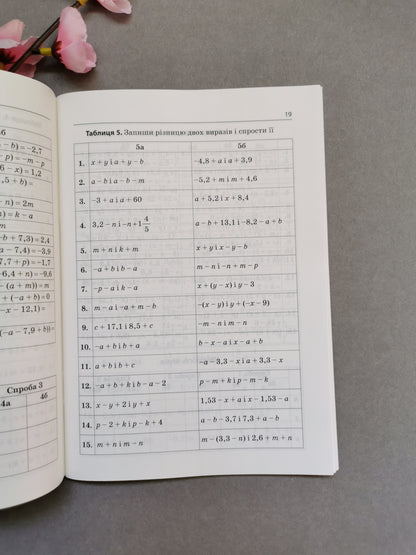 б
b) = -2,7
- b) =
- p) = -m - p
- 6) = 1,2
,5 + b) =
- n) = 2m
- k) = k - a
m
- b + 7,3) = 2,4
- a - 7,4) = -3,9
7,7 + p) = -1,7
-6,4 + n) = -9,6
- (a + m)) = m
+ (-a + b) = 0
- x - 12,1) =
(-a - 7,9 + b)) =
Спроба 3
4а 4б
19
Таблиця 5. Запиши різницю двох виразів і спрости її
5а 5б
1. x + y і a + y - b -4,8 + a і a + 3,9
2. a - b і a - b - m -5,2 + m і m + 4,6
3. -3 + a і a + 60 a + 5,2 і x + 8,4
4. 3,2 - n і -n + 1 4/5 a - b + 13,1 і -8,2 - a + b
5. m + n і k + m x + y і x - y - b
6. -a + b і b - a m - n і -n + m - p
7. -p - a і k - a x + (y - x) і y - 3
8. m - a і -a + m - b -(x - y) і y + (-x - 9)
9. c + 17,1 і 8,5 + c -m - n і m - n
10. -a + b і b + a b - x - a і x - a + b
11. a + b і b + c -a - 3,3 - x і a + 3,3 - x
12. -a + b + k і b - a - 2 p - m + k і p - m - k
13. x - y + 2 і y + x 1,53 - x + a і x - 1,53 - a
14. p - 2 + k і p - k + 4 a - b - 3,7 і 7,3 + a - b
15. m + n і m - n m - (3,3 - n) і 2,6 + m + n